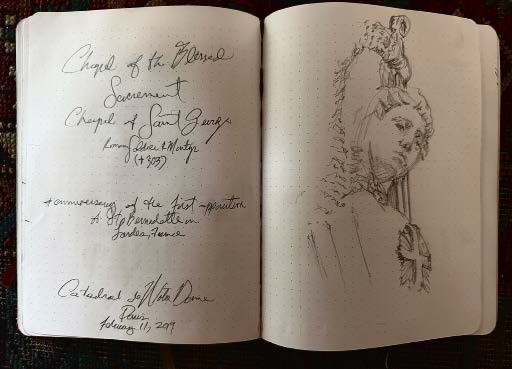 Chapel of the Blessed
Sacrement
Chapel of Saint George
Roman Soldier & Martyr
(+303)
Anniversary of the first apparition
to St Bernadette in
Lourdes, France
Cathedral de Notre Dame
Paris
February 11, 2019